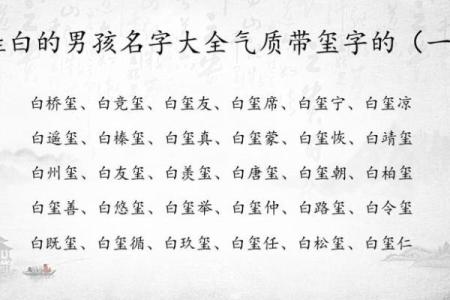 姓白的男孩名字大全气质带玺字的（一
白桥玺、白竞玺、白玺友、白玺席、白玺宁、白玺凉
白遥玺、白榛玺、白玺真、白玺蒙、白玺恢、白靖玺
白州玺、白友玺、白羡玺、白唐玺、白玺朝、白柏玺
白玺善、白悠玺、白玺举、白玺仲、白路玺、白令玺
白既玺、白玺循、白玖玺、白玺任、白松玺、白玺仁